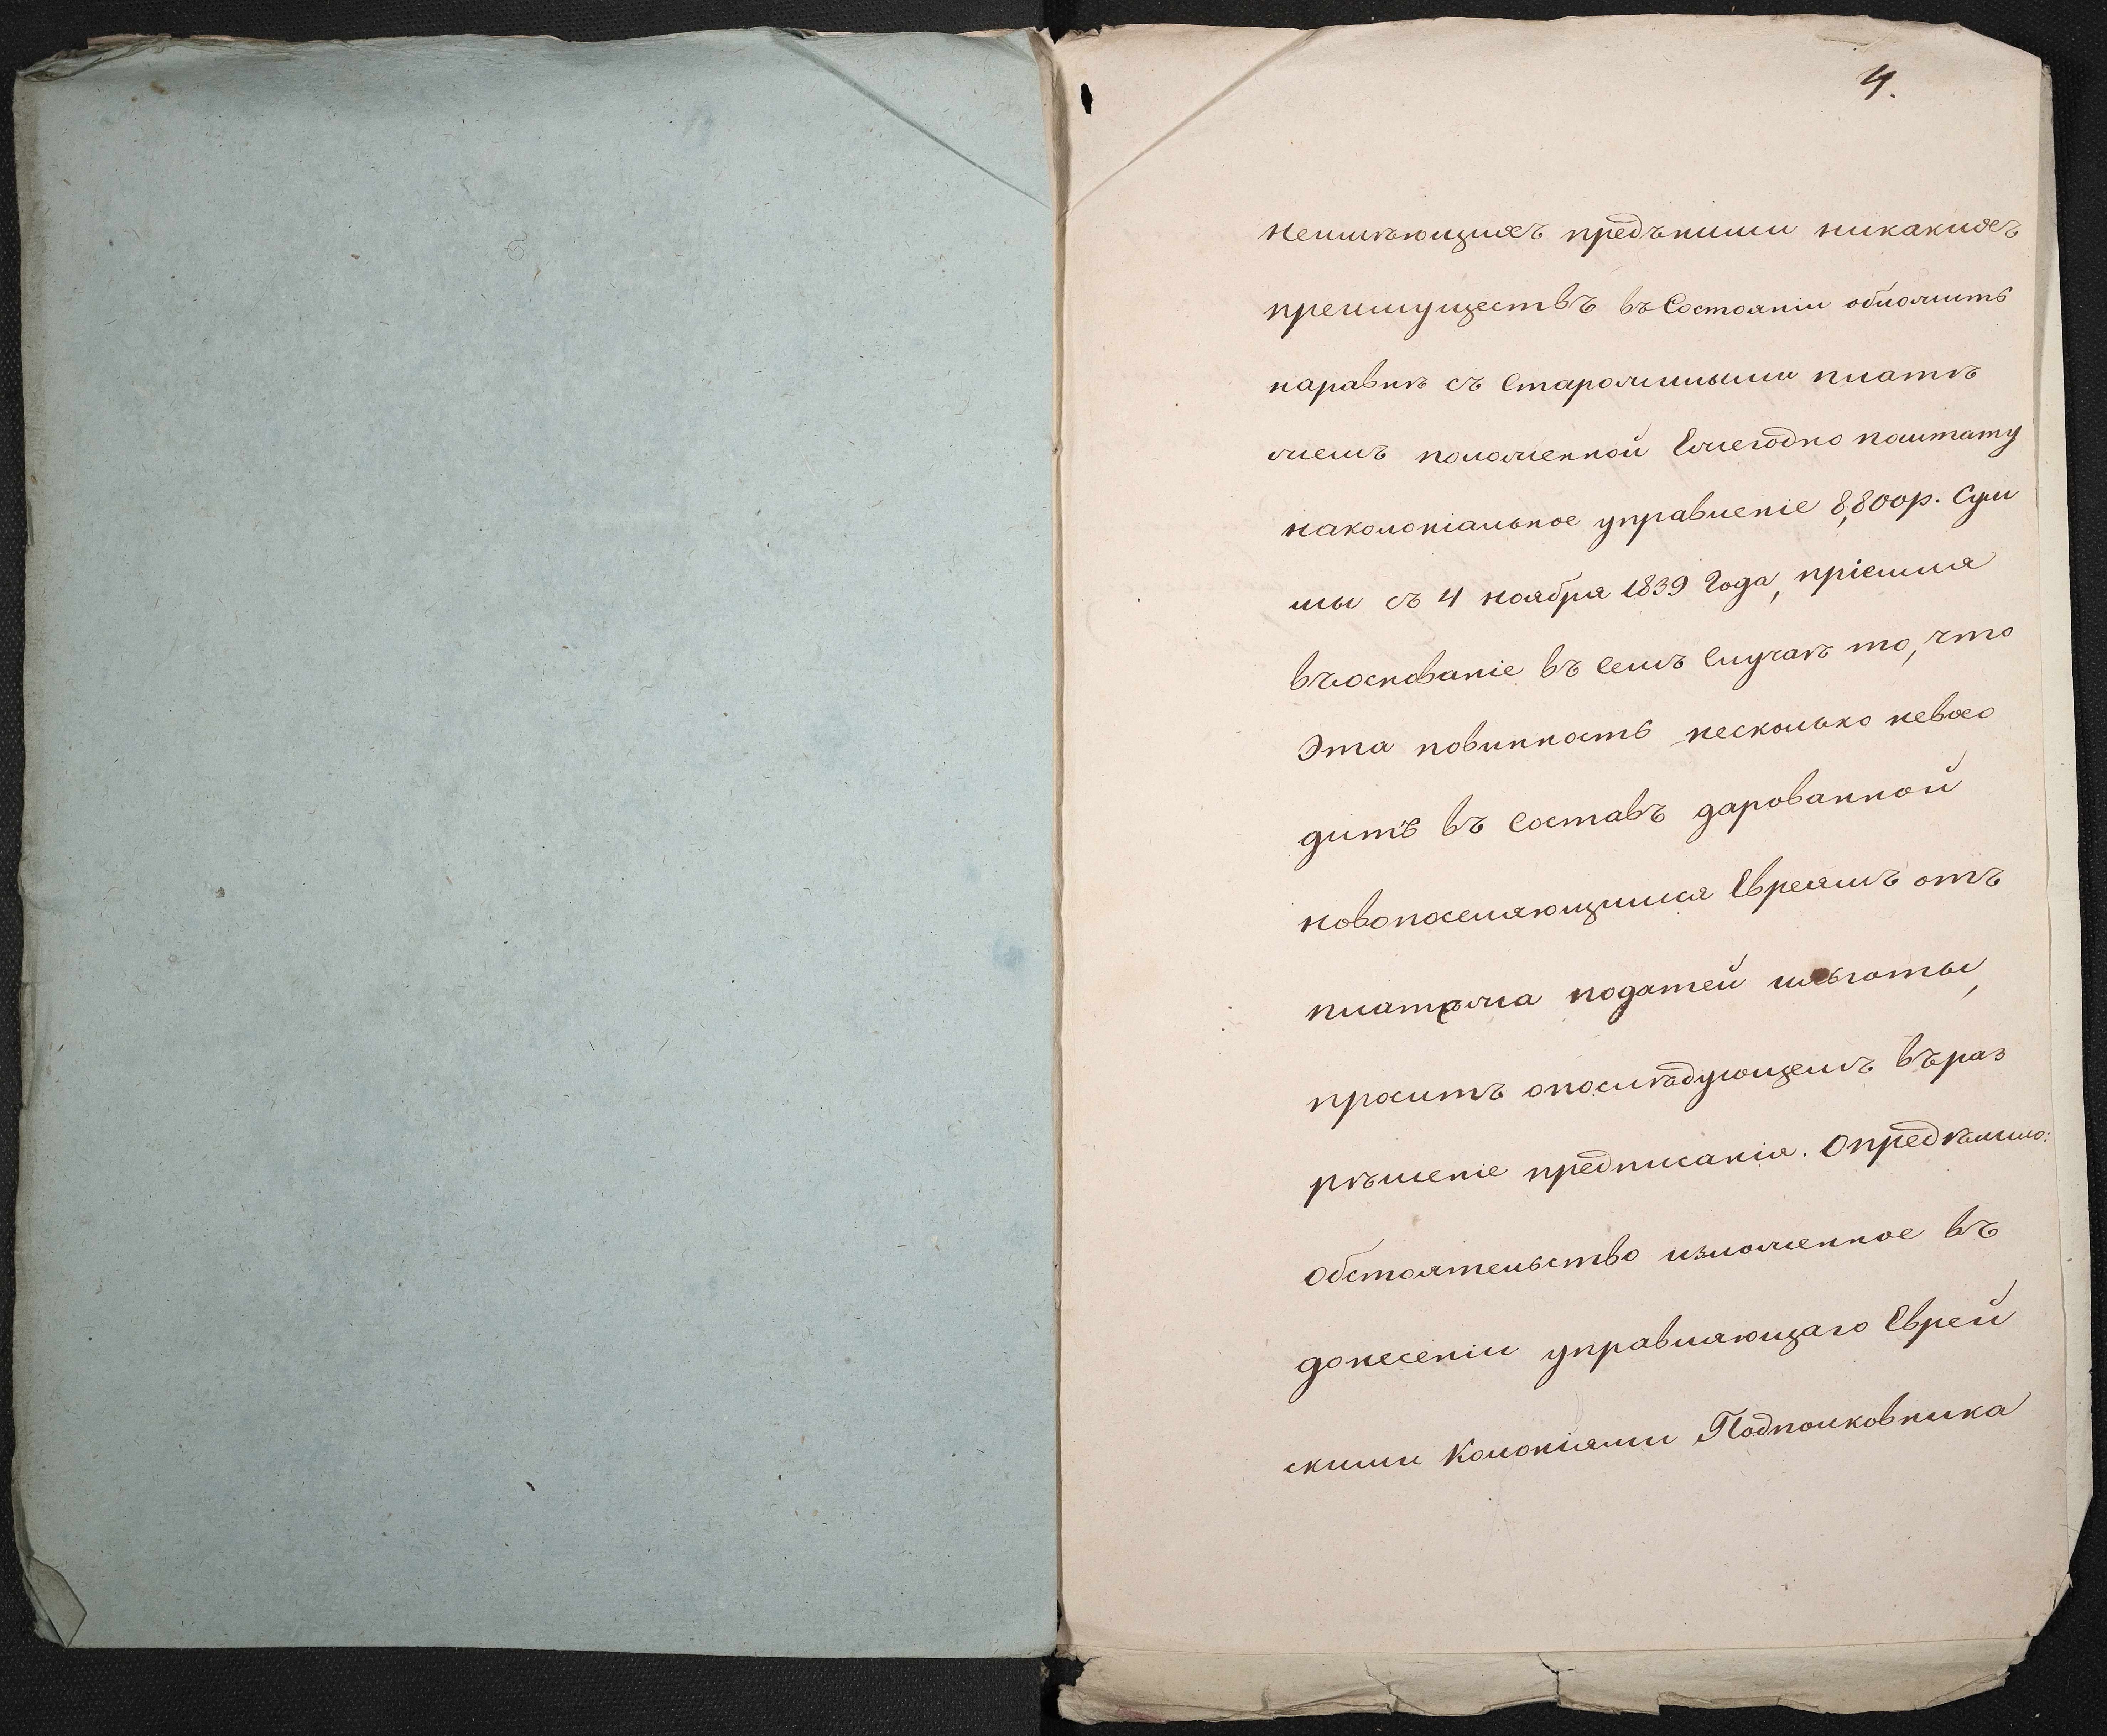 4.
неимѣющихъ предъними никакихъ
преимуществъ въ Состояніи обложить
наравнѣ съ Старожилыми платѣ
жемъ положенной Ежегодно поштату
наколоніальное управленіе 8,800р. Сум
мы съ 4 ноября 1839 Года, пріемля
въоснованіе въ семъ Случаѣ то, что
Эта повинность несколько невхо
дитъ въ Составъ дарованной
новопоселяющимся Евреямъ отъ
платежа податей льготы,
проситъ опослѣдующемъ въраз
рѣшеніе предписанія. Опредѣлило:
Обстоятельство изложенное въ
донесеніи управляющаго Еврей
скими Колоніями Подполковника